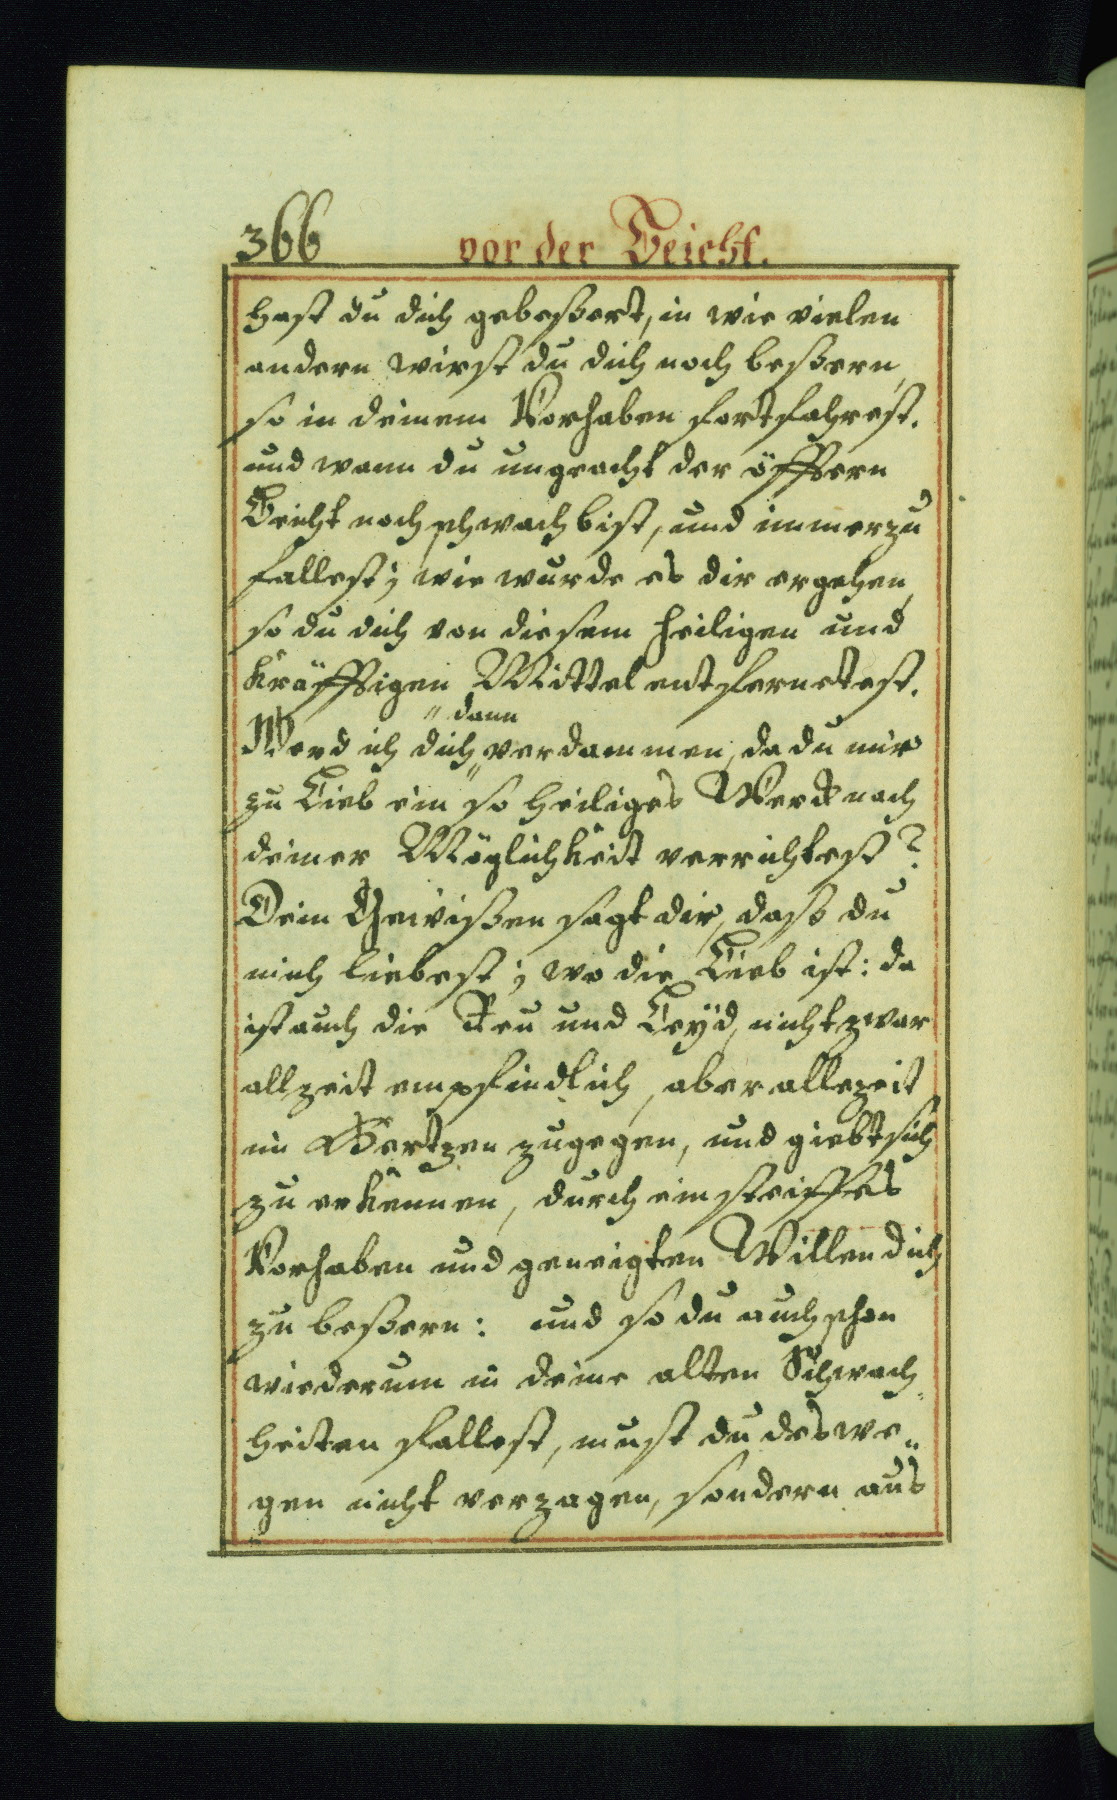 366 vor der Beicht.
hast du dich gebeßert, in wie vielen
andern wirst du dich noch beßern,
so in deinem Vorhaben fortfahrest.
und wann du ungeacht der öfftern
Beicht noch schwach bist, und immerzu
fallest; wie wurde es dir ergehen,
so du dich von diesem heiligen und
kräfftigen Mittel entfernetest.
" dann
Werd ich dich " verdammen, da du mir
zu Lieb ein so heiliges Werck nach
deiner Möglichkeit verrichtest?
Dein Gewißen sagt dir, daß du
mich liebest; wo die Lieb ist: da
ist auch die Reu und Leyd, nicht zwar
allzeit empfindlich, aber allezeit
im Hertzen zugegen, und giebt sich
zu erkennen, durch ein steiffes
Vorhaben und geneigten Willen dich
zu beßern: und so du auch schon
wiederum in deine alten Schwach-
heiten fallest, must du deswe-
gen nicht verzagen, sondern aus